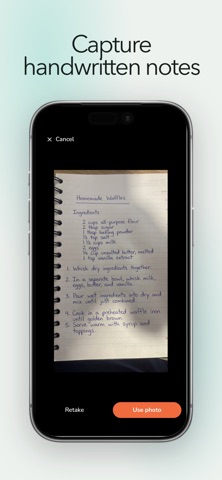 Capture
handwritten notes
Cancel
Homemade Waffles
Ingredients:
2 cups all-purpose flour
2 tbsp sugar
1 tbsp baking powder
½ tsp salt
1 ¾ cups milk
2 eggs
½ cup unsalted butter, melted
1 tsp vanilla extract
1. Whisk dry ingredients together.
2. In a separate bowl, whisk milk,
eggs, butter, and vanilla.
3. Pour wet ingredients into dry and
mix until just combined.
4. Cook in a preheated waffle iron
until golden brown.
5. Serve warm with syrup and
toppings.
Retake
Use photo